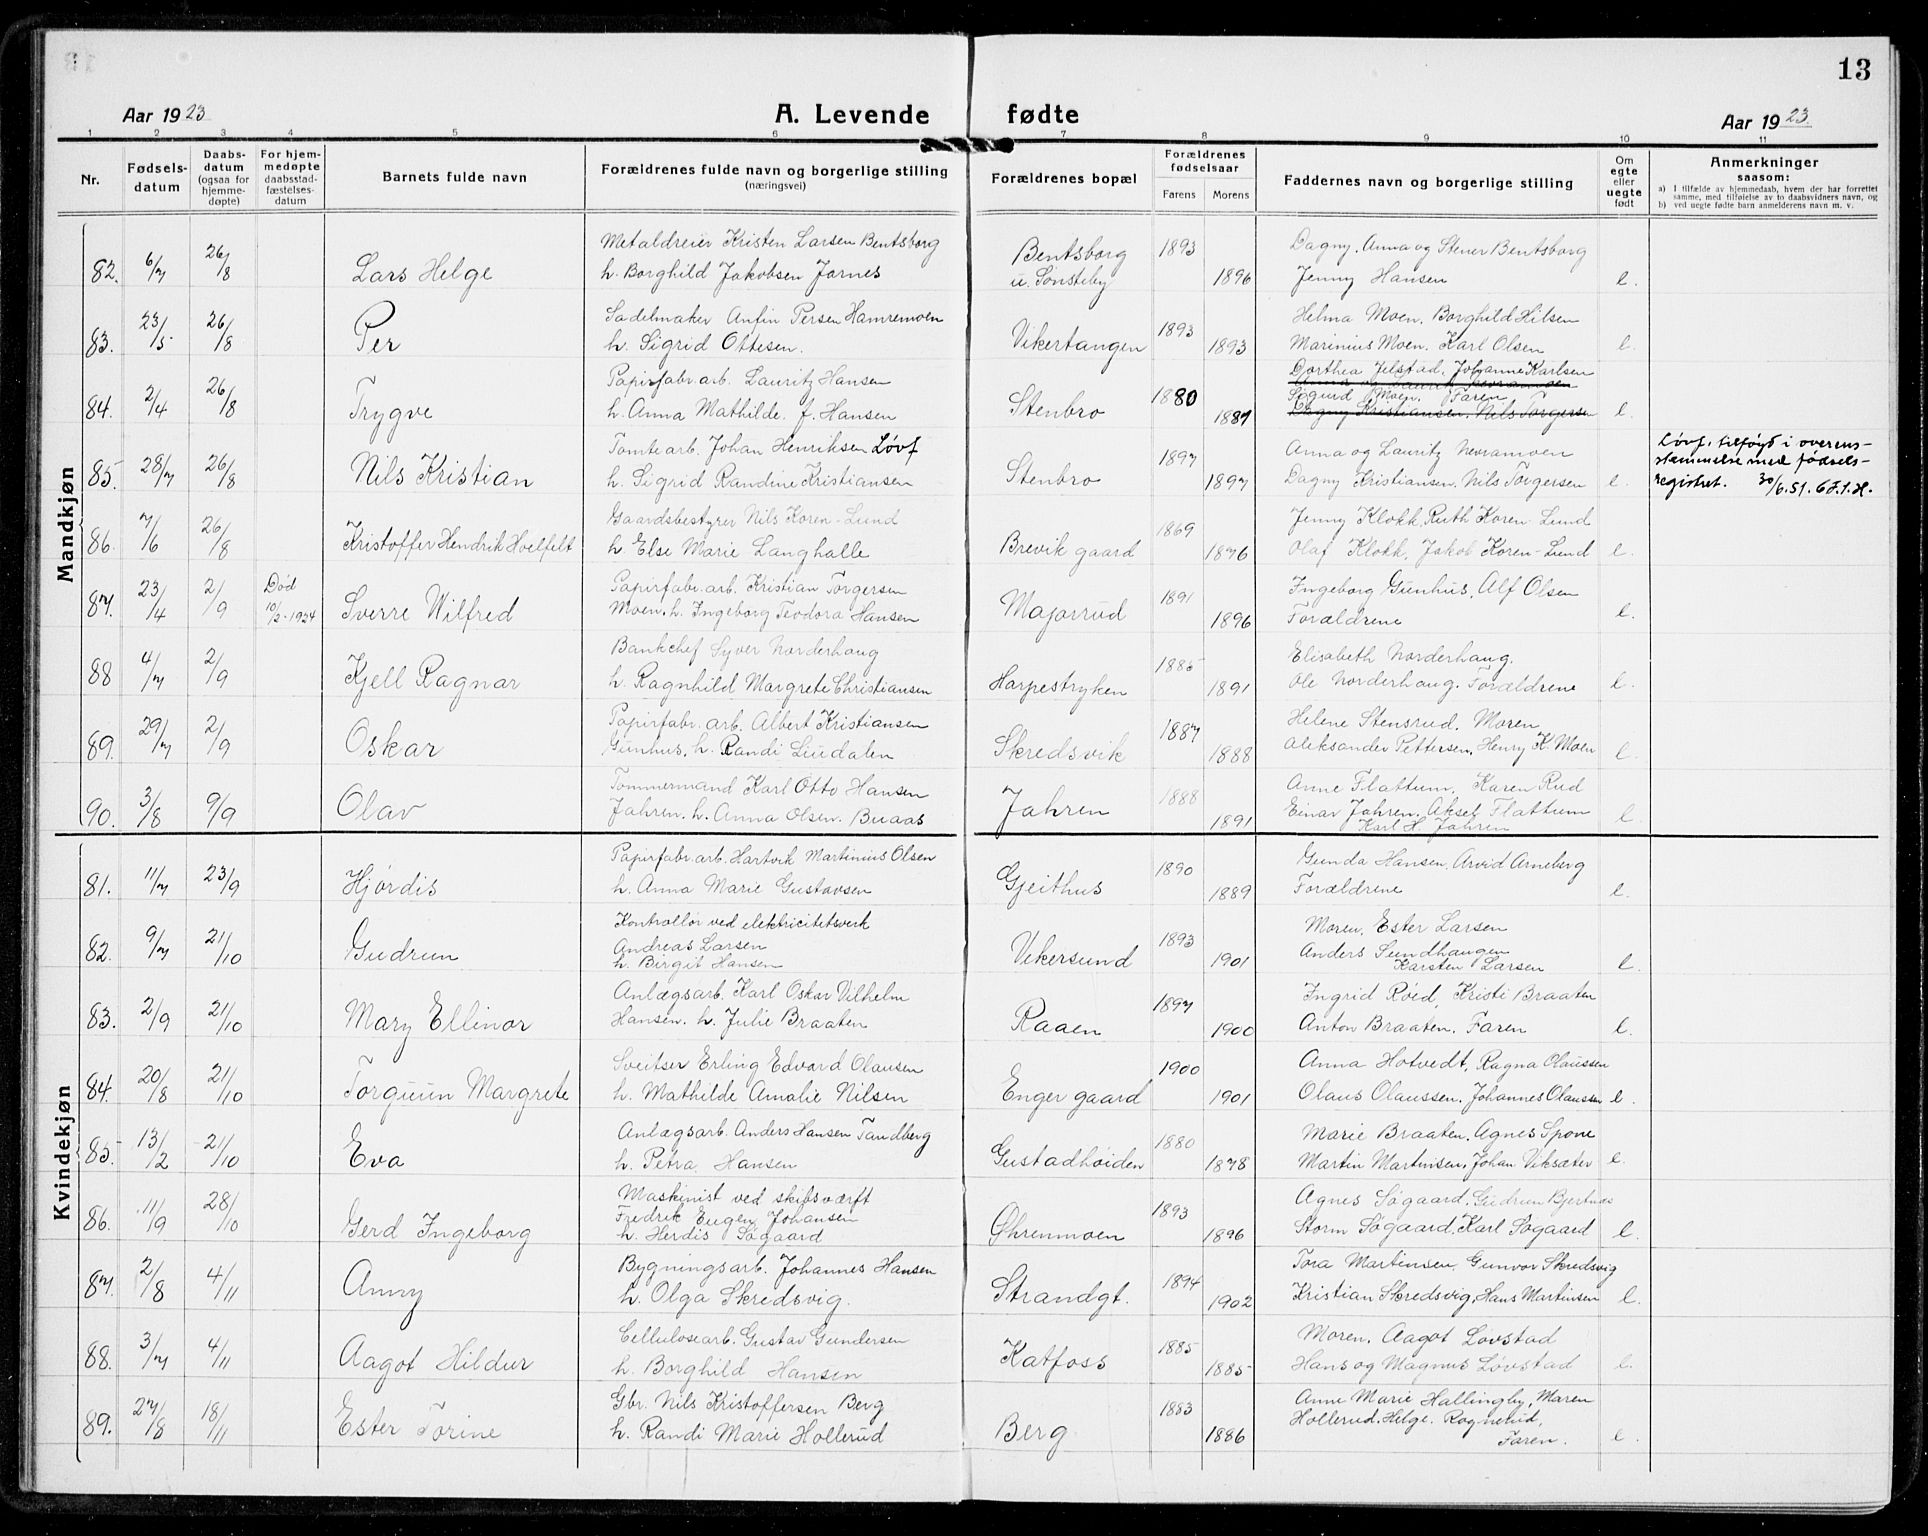 13
Aar 1923
A. Levende fødte
Aar 1923.
1 2 3 4 5 6 7 8 9 10 11
Nr.
Fødsels-
datum
Daabs-
datum
(ogsaa for
hjemme-
døpte)
For hjem-
medøpte
daabsstad-
fæstelses-
datum
Barnets fulde navn
Forældrenes fulde navn og borgerlige stilling
(næringsvei)
Forældrenes bopæl
Forældrenes
fødselsaar
Farens Morens
Faddernes navn og borgerlige stilling
Om
egte
eller
uegte
født
Anmerkninger
saasom:
a) I tilfælde av hjemmedaab, hvem der har forrettet
samme, med tilføielse av to daabsvidners navn, og
b) ved uegte fødte barn anmelderens navn m. v.
Mandkjøn
Metaldreier Kristen Larsen Bentsborg Bentsborg 1893 Dagny, Anna og Stener Bentsborg
82. 6/7 26/8 Lars Helge h. Borghild Jakobsen Jornes u. Sønsteby 1896 Jenny Hansen e.
Sadelmaker Anfin Persen Hamremoen 1893 Helma Moen, Borghild Hilsen
83. 23/5 26/8 Per h. Sigrid Ottesen. Vikertangen 1893 Marinius Moen. Karl Olsen e.
Papirfabr. arb. Lauritz Hansen 1880 Dorthea Jelstad, Johanne Karlsen
Anna og Lauritz Nevramoen
Sigurd Moen. Faren
84. 2/4 26/8 Trygve h. Anna Mathilde. f. Hansen Stenbro 1887 Dagny Kristiansen. Nils Torgersen e.
Tomtearb. Johan Henriksen Løvf 1897 Anna og Lauritz Nevramoen Løvf. tilføyd i overens-
stemmelse med fødsels-
85. 28/7 26/8 Nils Kristian h. Sigrid Randine Kristiansen Stenbro 1897 Dagny Kristiansen. Nils Torgersen e. registret. 30/6.51.
Gaardsbestyrer Nils Koren-Lund 1869 Jenny Klokk, Ruth Koren-Lund
86. 7/6 26/8 Kristoffer Hendrik Hoelfelt h. Else Marie Langhalle Brevik gaard 1876 Olaf Klokk, Jakob Koren-Lund e.
Død Papirfabr. arb. Kristian Torgersen 1891 Ingeborg Gunhus, Alf Olsen
87. 23/4 2/9 10/2-1924 Sverre Wilfred Moen. h. Ingeborg Teodora Hansen Majorrud 1896 Forældrene e.
Bankchef Syver Norderhaug 1885 Elisabeth Norderhaug.
88 4/7 2/9 Kjell Ragnar h. Ragnhild Margrete Christiansen Harpestryken 1891 Ole Norderhaug. Forældrene e.
Papirfabr. arb. Albert Kristiansen 1887 Helene Stensrud. Moren.
89. 29/7 2/9 Oskar Gunhus. h. Randi Liudalen Skredsvik 1888 Aleksander Pettersen, Henry K. Moen e.
Tømmermand Karl Otto Hansen 1888 Anne Flattum, Karen Rud
90. 3/8 9/9 Olav Jahren. h. Anna Olsen. Buaas Jahren 1891 Einar Jahren. Aksel Flattum e.
Karl H. Jahren
Kvindekjøn
Papirfabr. arb. Hartvik Martinius Olsen 1890 Gunda Hansen. Arvid Arneberg
81. 11/7 23/9 Hjørdis h. Anna Marie Gustavsen Gjeithus 1889 Forældrene e.
Kontrollør ved elektricitetsverk 1893 Moren, Ester Larsen
82. 9/7 21/10 Gudrun Andreas Larsen Vikersund 1901 Anders Sundhaugen e.
h. Birgit Hansen Karsten Larsen
Anlægsarb. Karl Oskar Vilhelm 1897 Ingrid Røed, Kristi Braaten
83. 2/9 21/10 Mary Ellinor Hansen. h. Julie Braaten Raaen 1900 Anton Braaten. Faren e.
Sveitser Erling Edvard Olausen 1900 Anna Hotvedt, Ragna Olaussen
84. 20/8 21/10 Torguun Margrete h. Mathilde Amalie Nilsen Enger gaard 1901 Olaus Olaussen. Johannes Olaussen e.
Anlægsarb. Anders Hansen Tandberg 1880 Marie Braaten. Agnes Spone
85. 13/2 21/10 Eva h. Petra Hansen Gustadhøiden 1878 Martin Martinsen, Johan Viksæter e.
Maskinist ved skibsværft 1893 Agnes Søgaard, Gudrun Bjertnæs
86. 11/9 28/10 Gerd Ingeborg Fredrik Eugen Johansen Øhrenmoen 1896 Storm Søgaard, Karl Søgaard e.
h. Herdis Søgaard
Bygningsarb. Johannes Hansen 1894 Tora Martinsen, Gunvor Skredsvig
87. 2/8 4/11 Anny h. Olga Skredsvig. Strandgt. 1902 Kristian Skredsvig, Hans Martinsen e.
Cellulosearb. Gustav Gundersen 1885 Moren. Aagot Løvstad
88. 3/7 4/11 Aagot Hildur h. Borghild Hansen Katfoss 1885 Hans og Magnus Løvstad e.
Gbr. Nils Kristoffersen Berg 1883 Anne Marie Hallingby, Maren
89. 27/8 18/11 Ester Torine h. Randi Marie Hollerud Berg 1886 Hollerud. Helge. Ragnhild, e.
Faren.